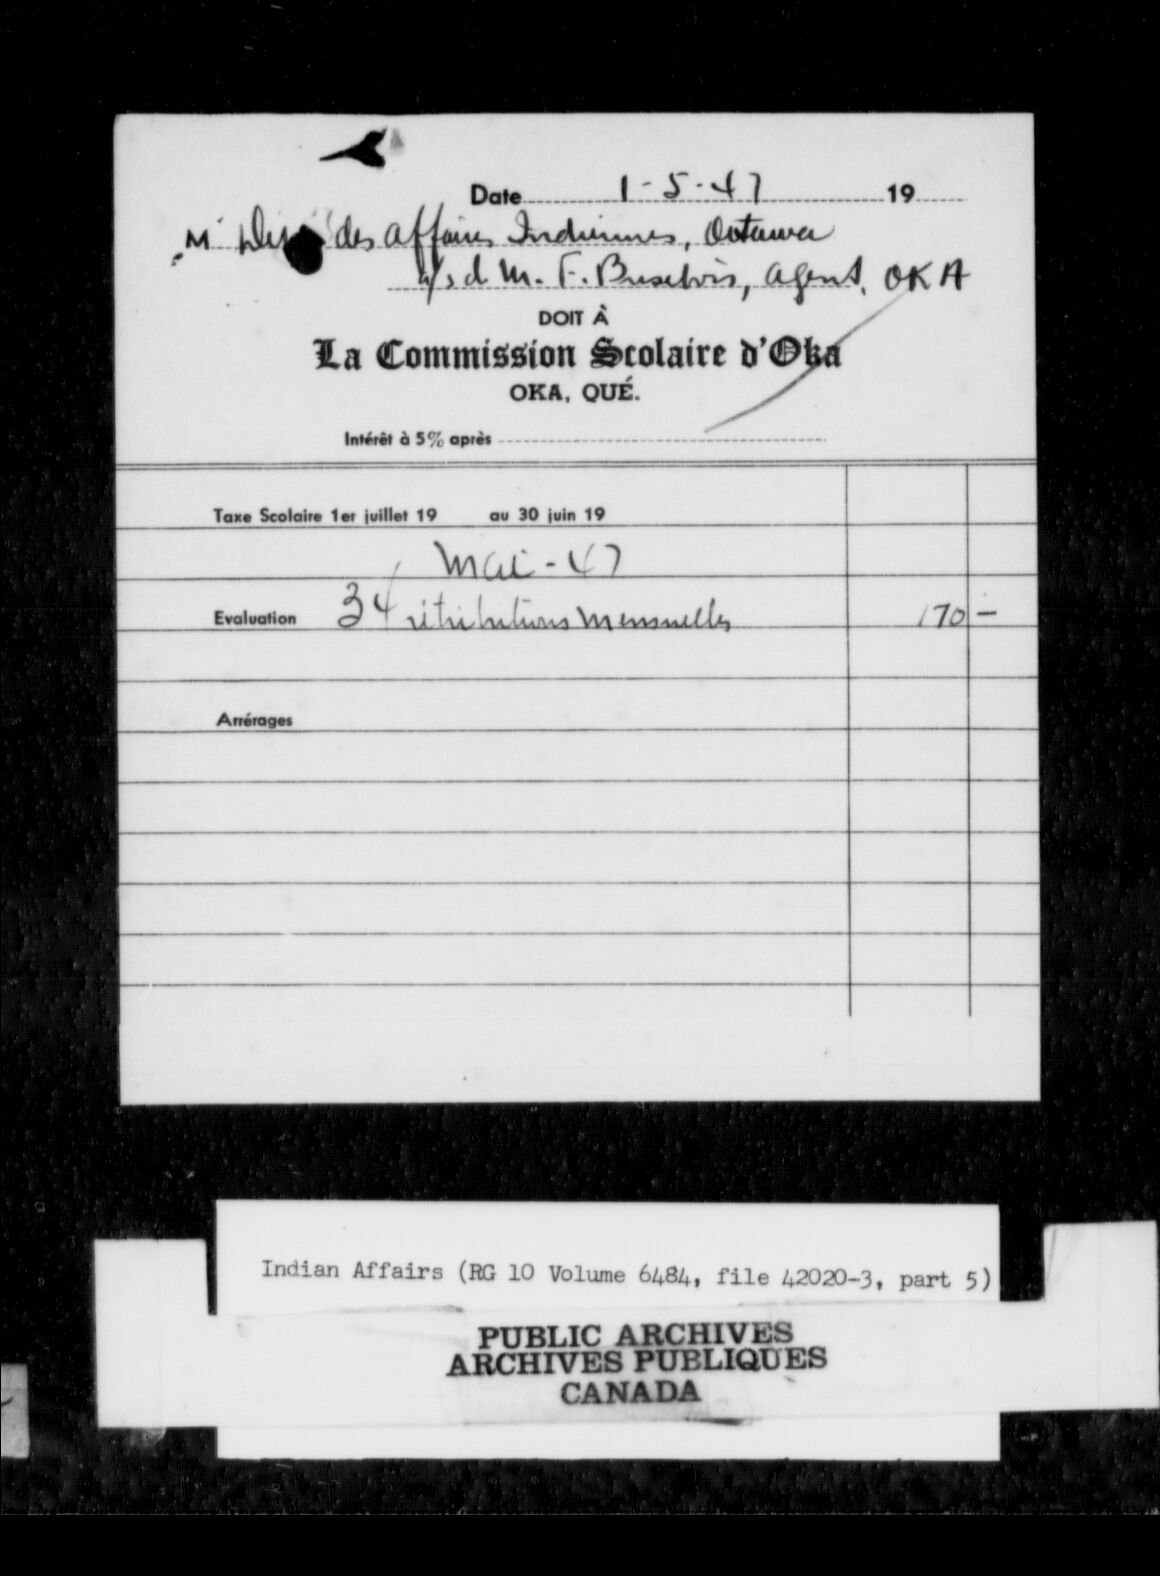 Date 1-5-47 19
M des Affaires Indiennes, Ottawa
a/s d M. F. Brisebois, agent, OKA
DOIT À
La Commission Scolaire d'Oka
OKA, QUÉ.
Intérêt à 5% après
Taxe Scolaire 1er juillet 19 au 30 juin 19
Mai - 47
Evaluation 34 rétributions mensuelles 170 -
Arrérages
Indian Affairs (RG 10 Volume 6484, file 42020-3, part 5)
PUBLIC ARCHIVES
ARCHIVES PUBLIQUES
CANADA